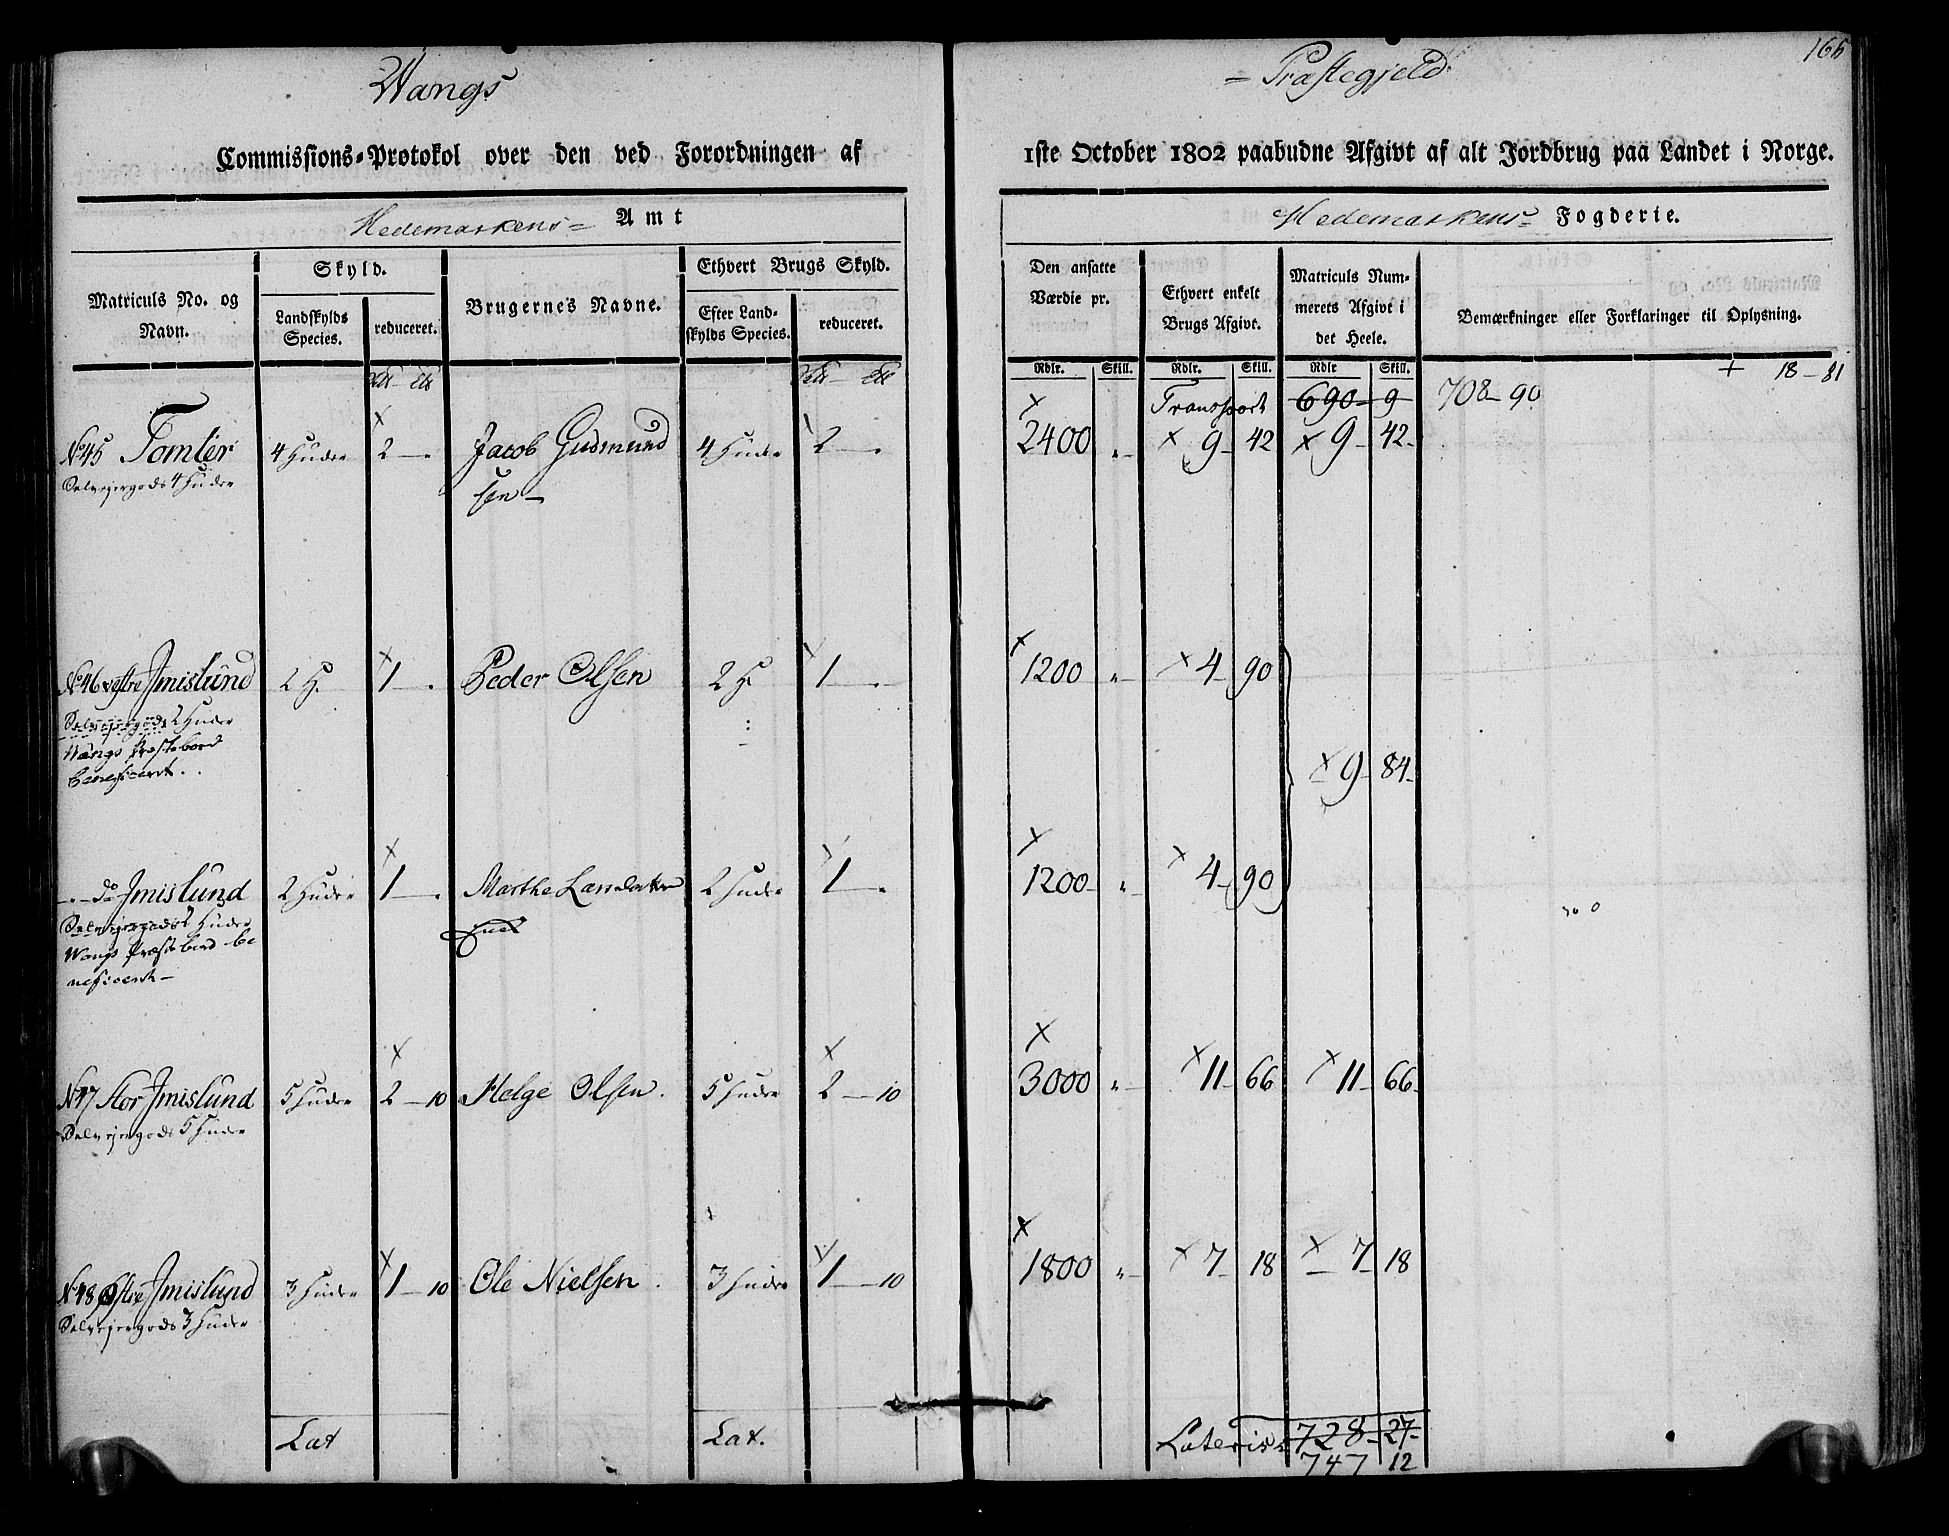 Wangs
= Præstegjeld
Commissions-Protokol over den ved Forordningen af
1ste October 1802 paabudne Afgivt af alt Jordbrug paa Landet i Norge.
Hedemarkens= Amt
Hedemarkens= Fogderie.
Matriculs No. og Navn.
Skyld.
Landskylds Species.
reduceret.
Brugernes Navne.
Ethvert Brugs Skyld.
Efter Landskylds Species.
reduceret.
Den ansatte Værdie pr.
Ethvert enkelt Brugs Afgivt.
Matriculs Nummerets Afgivt i det Heele.
Bemærkninger eller Forklaringer til Oplysning.
Rdlr. Skill. Rdlr. Skill. Rdlr Skill.
+ 18 - 81
Transport 690 - 9 708 - 90
No 45 Tomler 4 Huder x 2 - . Jacob Gudmund 4 Huder 2 - . x 2400 " x 9 - 42 x 9 - 42 -
Selvejergods 4 Huder
sen -
No 46 vestre Imislund 2 H. x 1 - . Peder Olsen 2 H x 1 - . x 1200 " x 4 - 90
Selvejergods 2 Huder
Wangs Præstebord
beneficeret . .
x 9 - 84 -
- . - do Imislund 2 Huder x 1 - . Marthe 2 Huder x 1 - . x 1200 - " x 4 - 90
Selvejergods 2 Huder
Wangs Præstebord be
neficeret -
No 47 Stor Imislund 5 Huder x 2 - 10 Helge Olsen . 5 Huder x 2 - 10 x 3000 " x 11 - 66 x 11 - 66 -
Selvejergods 5 Huder
No 48 Østre Imislund 3 Huder x 1 - 10 Ole Nielsen . 3 Huder x 1 - 10 x 1800 " x 7 - 18 x 7 - 18
Selvejergods 3 Huder
Lat
Lat.
Lateris 728 - 27 -
747 12